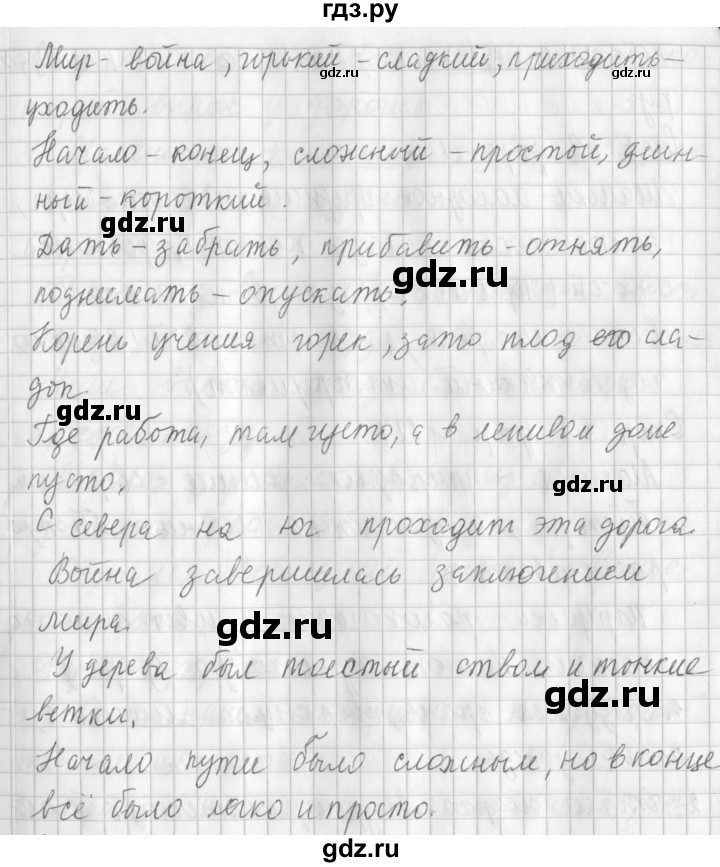 гдз.ру
Мир - война, горький - сладкий, приходить -
gdz.ru
уходить.
Начало - конец, сложный - простой, длин-
ный - короткий.
gdz.ru
Дать - забрать, прибавить - отнять,
gdz.ru
поднимать - опускать.
Корень учения горек, зато плод его сла-
док.
gdz.ru
Где работа, там густо, а в ленивом доме
пусто.
gdz.ru
С севера на юг проходит эта дорога.
Война завершилась заключением
мира.
gdz.ru
У дерева был толстый ствол и тонкие
gdz.ru
ветки.
Начало пути было сложным, но в конце
всё было легко и просто.
gdz.ru